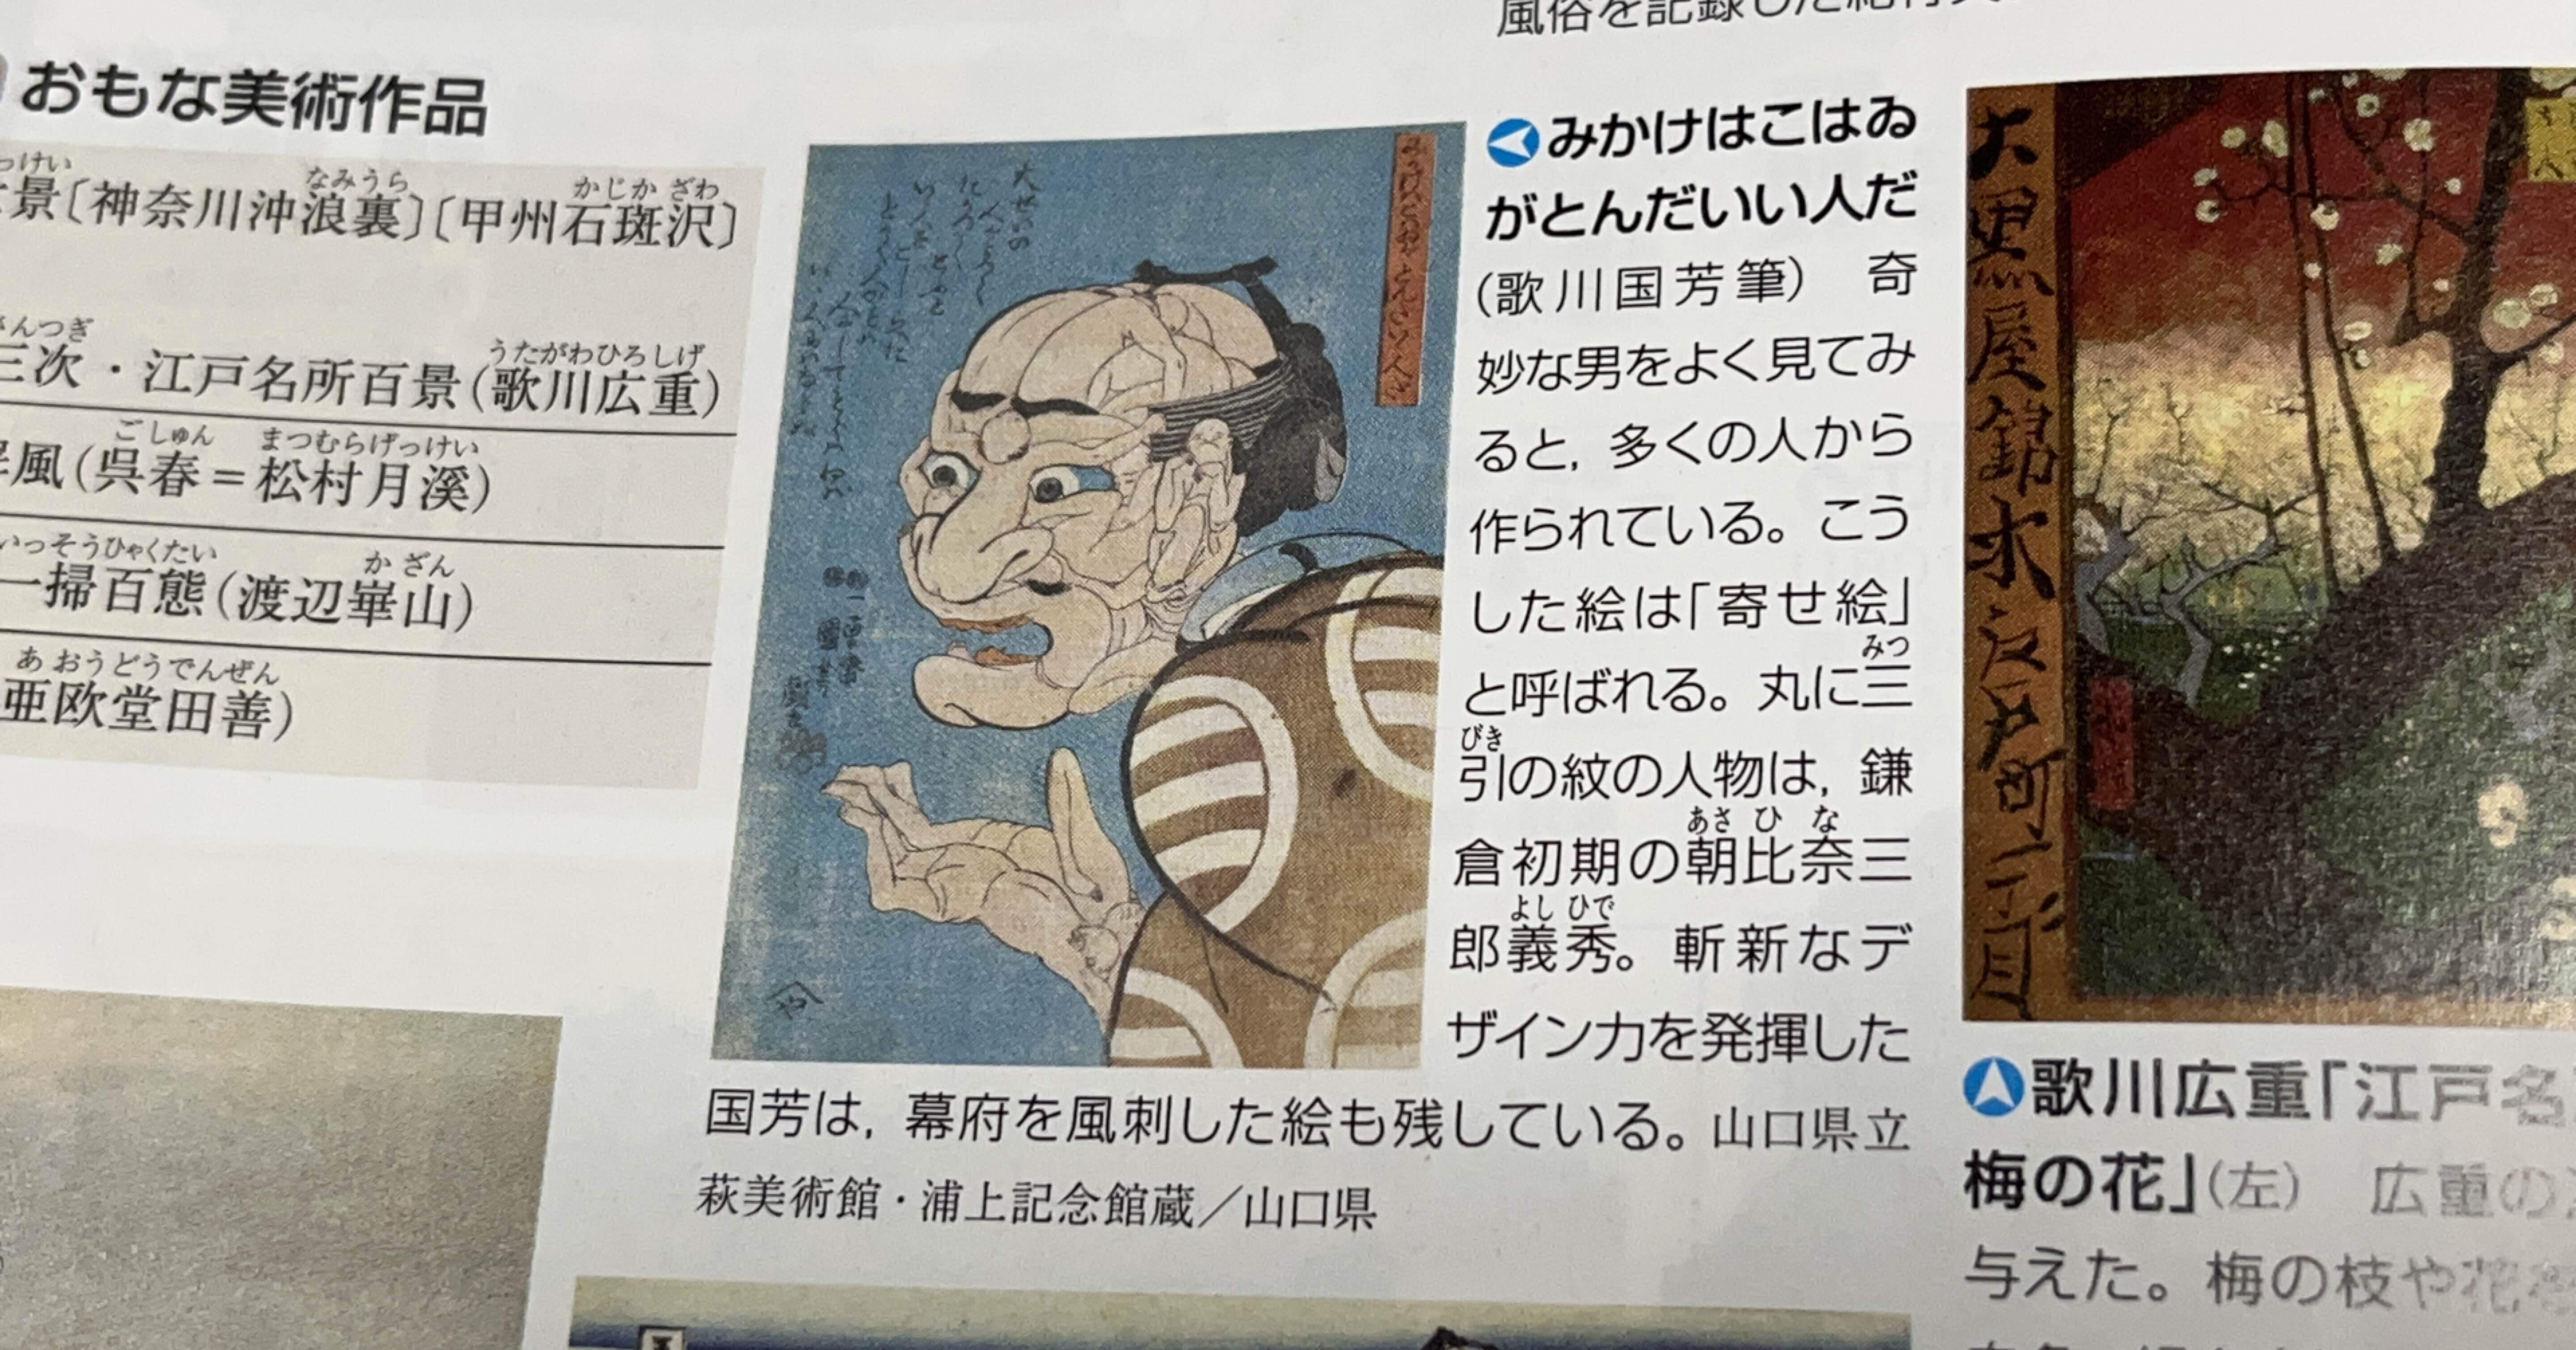 風俗を記録した
おもな美術作品
っけい なみうら かじかざわ
景〔神奈川沖浪裏〕〔甲州石斑沢〕
さんつぎ うたがわひろしげ
三次・江戸名所百景(歌川広重)
ごしゅん まつむらげっけい
風(呉春=松村月溪)
いっそうひゃくたい かざん
一掃百態(渡辺崋山)
あおうどうでんぜん
亜欧堂田善)
みかけはこはゐ
がとんだいい人だ
(歌川国芳筆) 奇
妙な男をよく見てみ
ると,多くの人から
作られている。こう
した絵は「寄せ絵」
みつ
と呼ばれる。丸に三
びき
引の紋の人物は,鎌
あさひな
倉初期の朝比奈三
よしひで
郎義秀。斬新なデ
ザイン力を発揮した
国芳は,幕府を風刺した絵も残している。山口県立
萩美術館・浦上記念館蔵/山口県
大黒屋錦木江戸町二丁目
歌川広重「江戸名
梅の花」(左) 広重の
与えた。梅の枝や花を